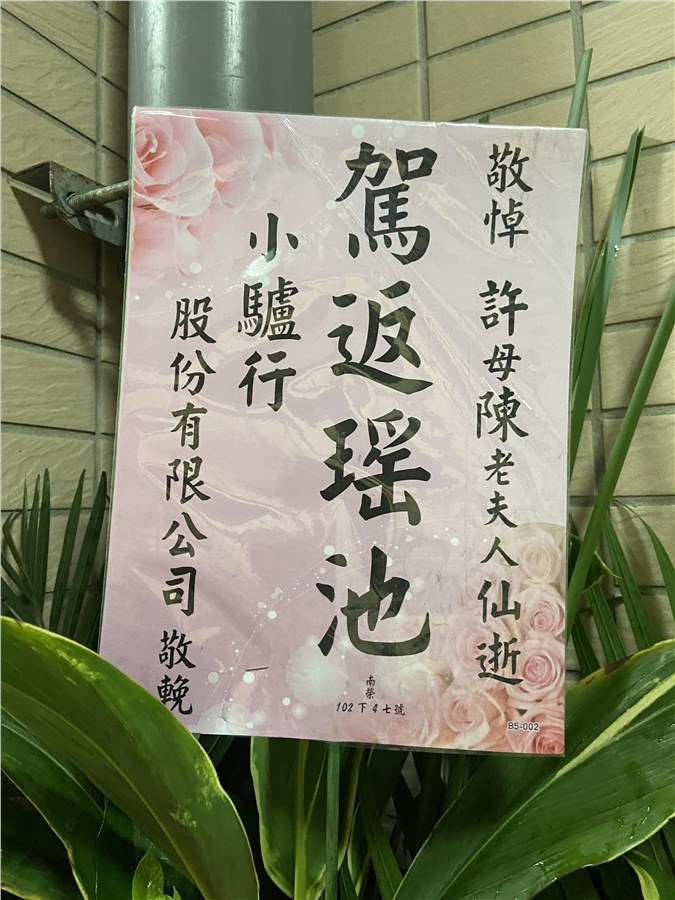 敬悼 許母陳老夫人仙逝
駕返瑤池
小驢行
股份有限公司 敬輓
南榮
102下4七號
B5-002